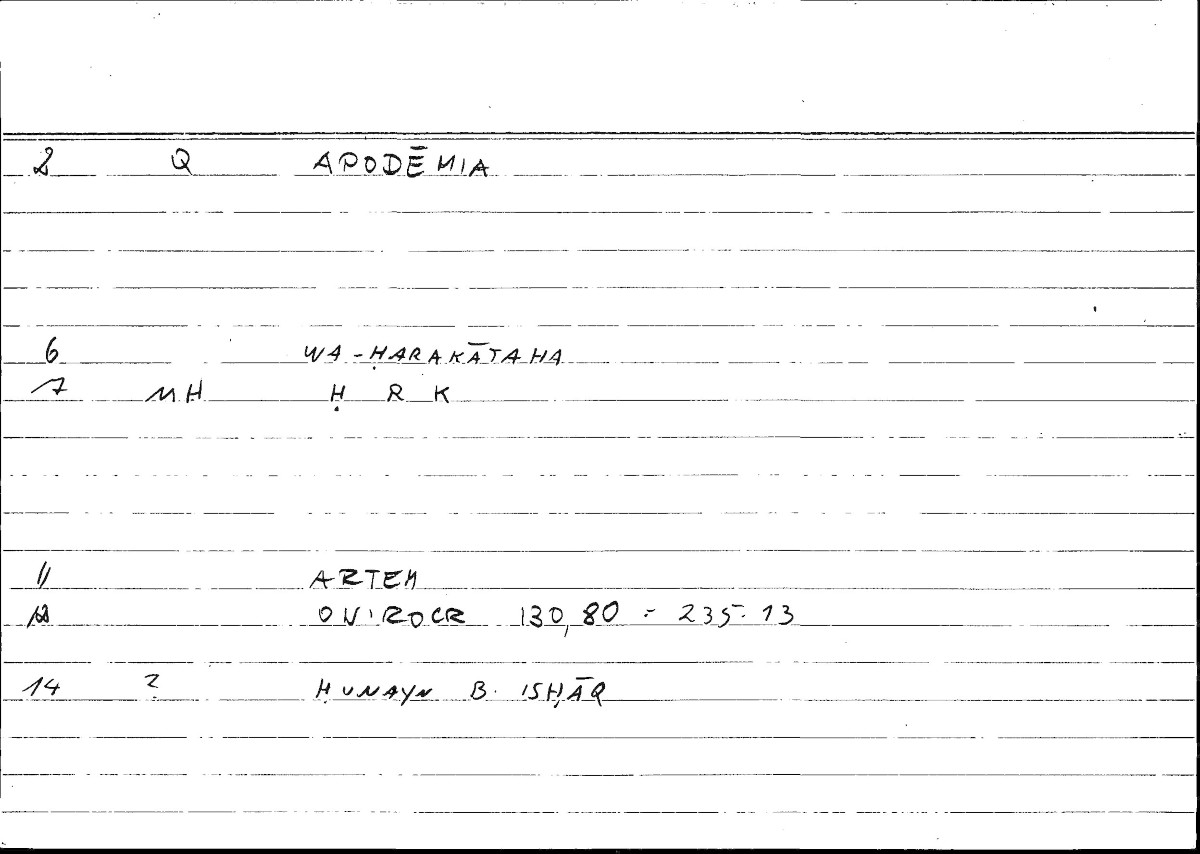 2 Q APODĒMIA
6 WA-ḤARAKĀTAHA
7 MH Ḥ R K
11 ARTEM
12 ONIROCR 130,80 = 235.13
14 ? ḤUNAYN B. ISḤĀQ